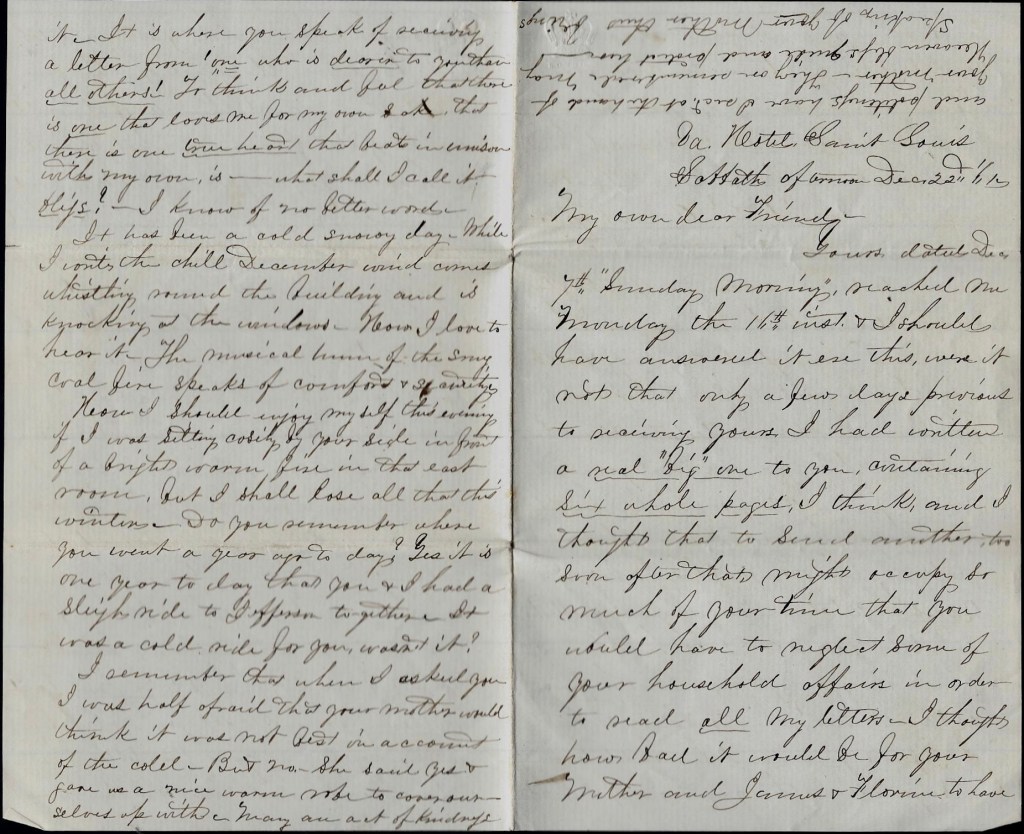 it - It is where you speak of receiving
a letter from "one who is dearer to you than
all others! To think and feel that there
is one that loves me for my own sake, that
there is one true heart that beats in unison
with my own, is — what shall I call it,
bliss? - I know of no better word -
It has been a cold snowy day - While
I write the chill December wind comes
whistling round the building and is
knocking at the windows - How I love to
hear it - The musical hum of the
coal fire speaks of comfort &
How I should enjoy myself this evening
if I was sitting cosily by your side in front
of a bright warm fire in that east
room, but I shall lose all that this
winter - Do you remember where
you went a year ago to day? Yes it is
one year to day that you & I had a
sleigh ride to Jefferson together - It
was a cold ride for you, wasn't it?
I remember that when I asked you
I was half afraid that your mother would
think it was not best in account
of the cold - But no - She said yes &
gave us a nice warm robe to cover our-
selves up with - Many an act of kindness
and politeness have I rec'd at the hand of
your Mother - They are remembered. May
Heaven bless guide and protect her -
Speaking of your Mother this brings
Da. Hotel, Saint Louis
Sabbath afternoon Dec. 22nd
My own dear Friend -
Yours dated Dec
7th "Sunday Morning", reached me
Monday the 16th inst. & I should
have answered it ere this, were it
not that only a few days previous
to receiving yours I had written
a real "big" one to you, containing
six whole pages, I think, and I
thought that to send another, too
soon after that might occupy so
much of your time that you
would have to neglect some of
your household affairs in order
to read all my letters - I thought
how bad it would be for your
Mother and James & Florine to have